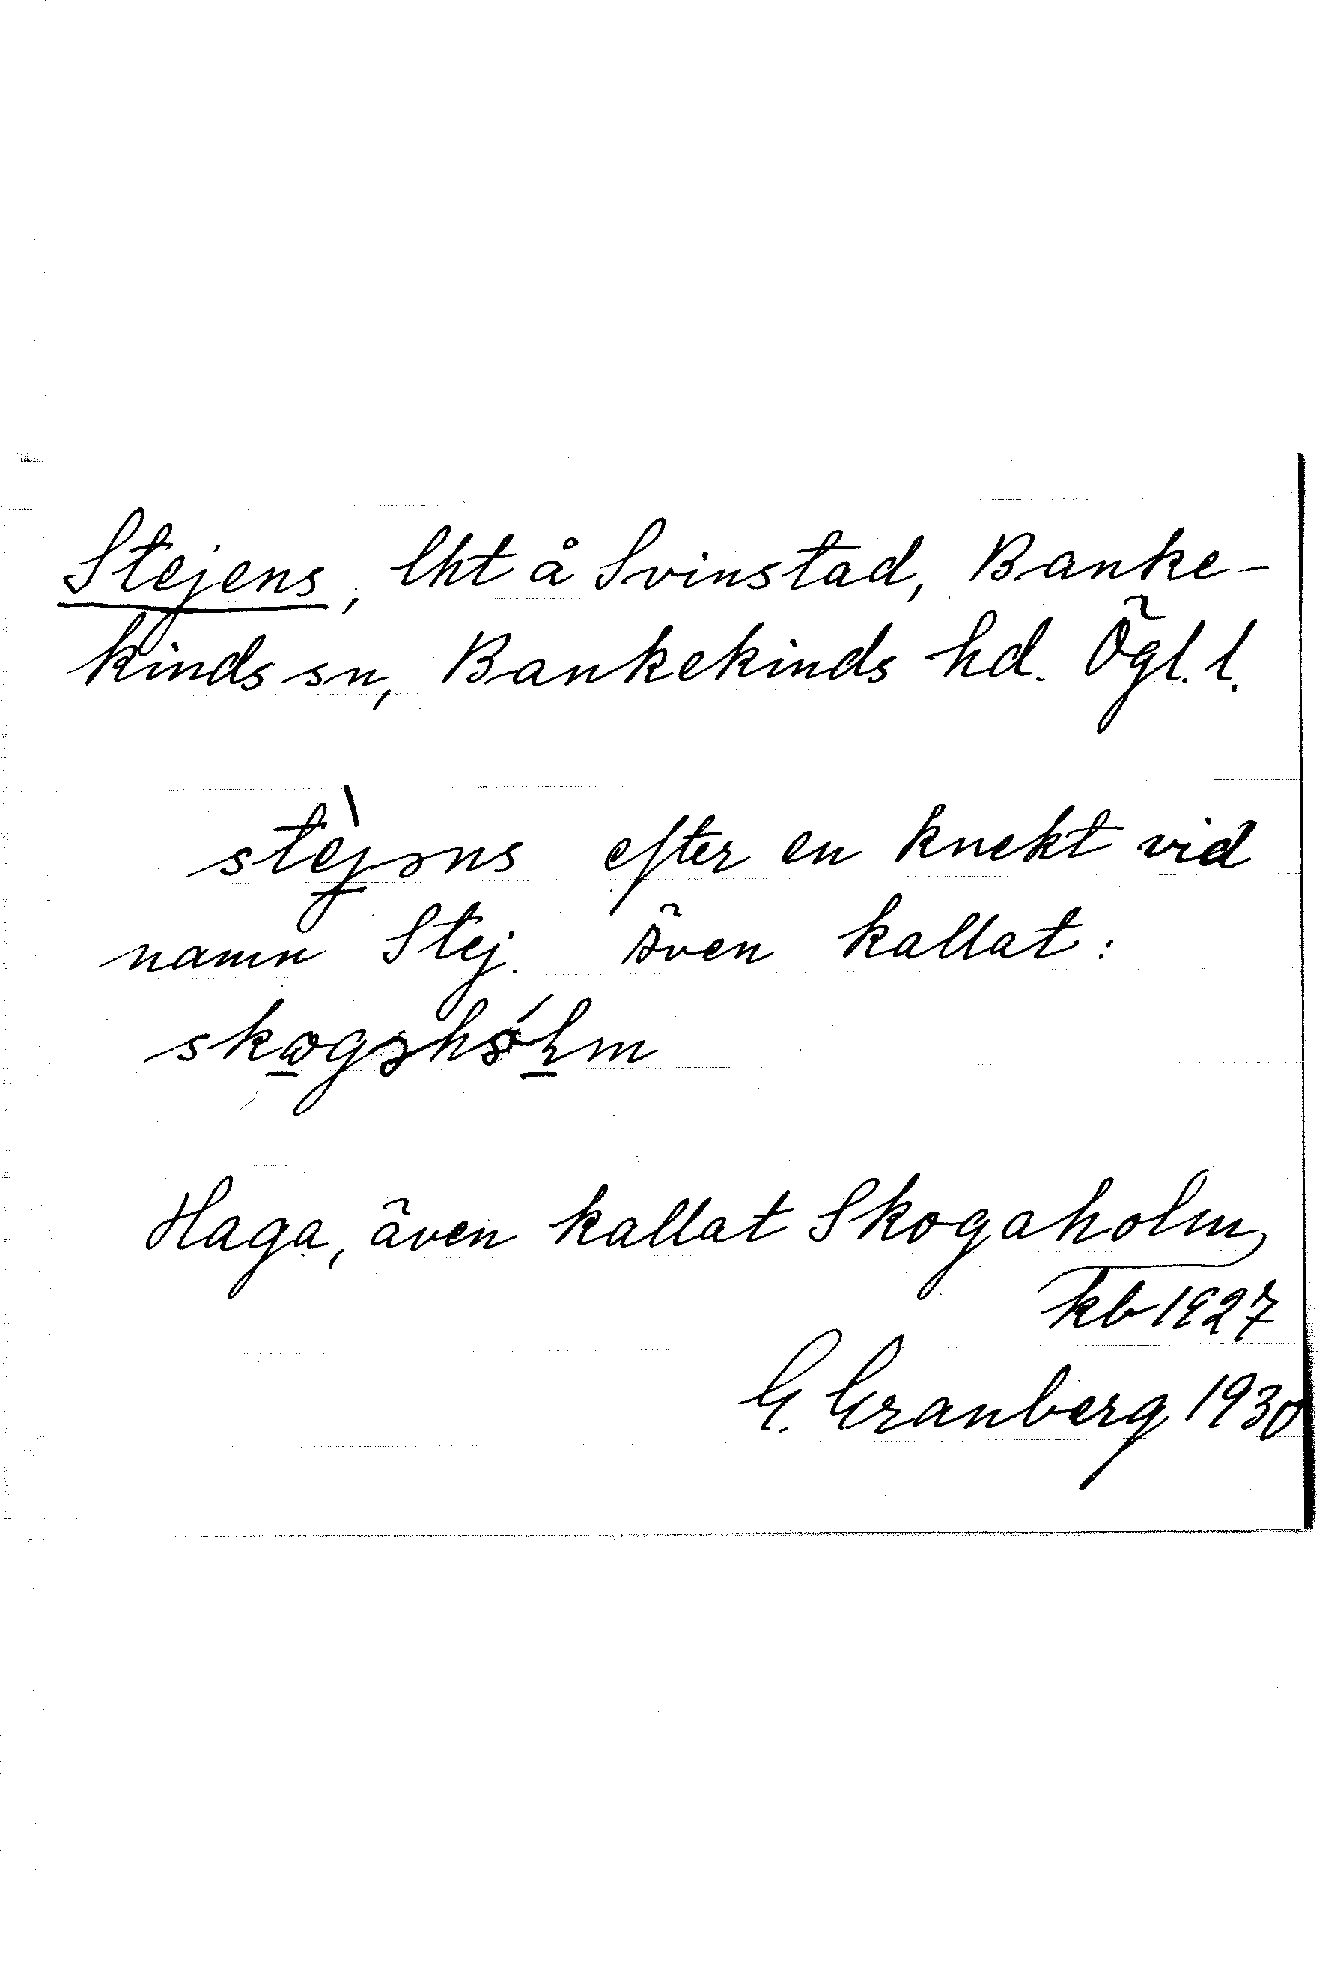 Stejens, lht å Svinstad, Banke-
kinds sn, Bankekinds hd. Ögl. l.
stèjəns efter en knekt vid
namn Stej. Även kallat:
skogəhólm
Haga, även kallat Skogaholm,
kb 1927
G. Granberg 1930